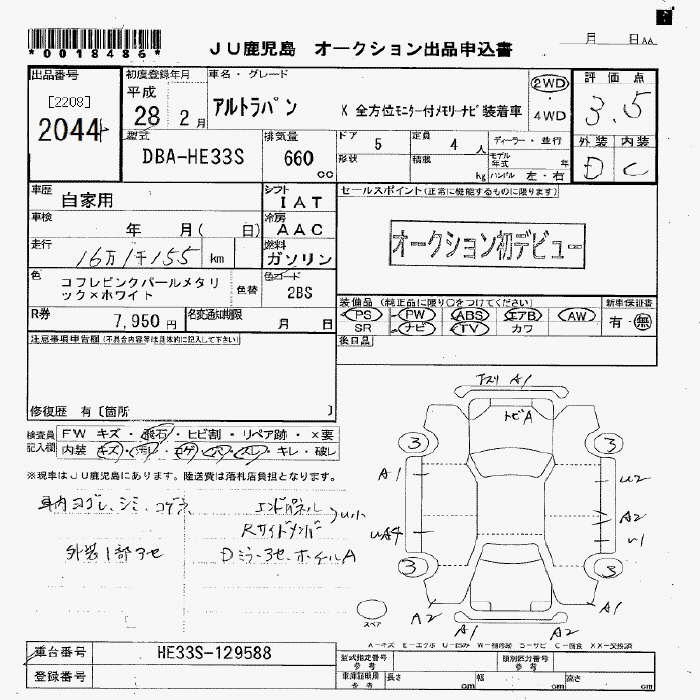 *0018486*
JU鹿児島 オークション出品申込書
月 日 AA
出品番号
[2208]
2044
初度登録年月
平成
28 2月
車名・グレード
アルトラパン X 全方位モニター付メモリーナビ装着車
2WD
・
4WD
評価点
3.5
外装 内装
D C
型式
DBA-HE33S
排気量
660
cc
ドア 5
形状
定員 4 人
積載 kg
ディーラー・並行
モデル年式 年
ハンドル 左・右
車歴
自家用
シフト
IAT
セールスポイント(正常に機能するものに限ります)
車検
年 月( 日)
冷房
AAC
オークション初デビュー
走行
16万1千155 km
燃料
ガソリン
色
コフレピンクパールメタリ
ック×ホワイト
色替
色コード
2BS
R券
7,950円
名変通知期限
月 日
装備品(純正品に限り○をつけてください)
PS PW ABS エアB AW
SR ナビ TV カワ
新車保証書
有・無
後日品
注意事項申告欄(不具合内容等は具体的に記入して下さい)
修復歴 有〔箇所 〕
検査員
記入欄
FW キズ・飛石・ヒビ割・リペア跡・×要
内装 キズ・汚レ・コゲ・穴・スレ・キレ・破レ
※現車はJU鹿児島にあります。陸送費は落札店負担となります。
車内ヨゴレ、シミ、コゲ穴
外装1部アセ
エンドパネル
Rサイドメンバー
U小
Dミラーアセ、ホイールA
A1
トビA
3
3
A1
U2
A2
UA4
3
3
A2
A1
A2
A2
スペア
A-キズ E-エクボ U-凹み W-補修跡 S-サビ C-腐食 XX-交換済
車台番号
HE33S-129588
登録番号
型式指定番号
参考
類別区分番号
参考
車庫証明用
参考
長さ cm
幅 cm
高さ cm